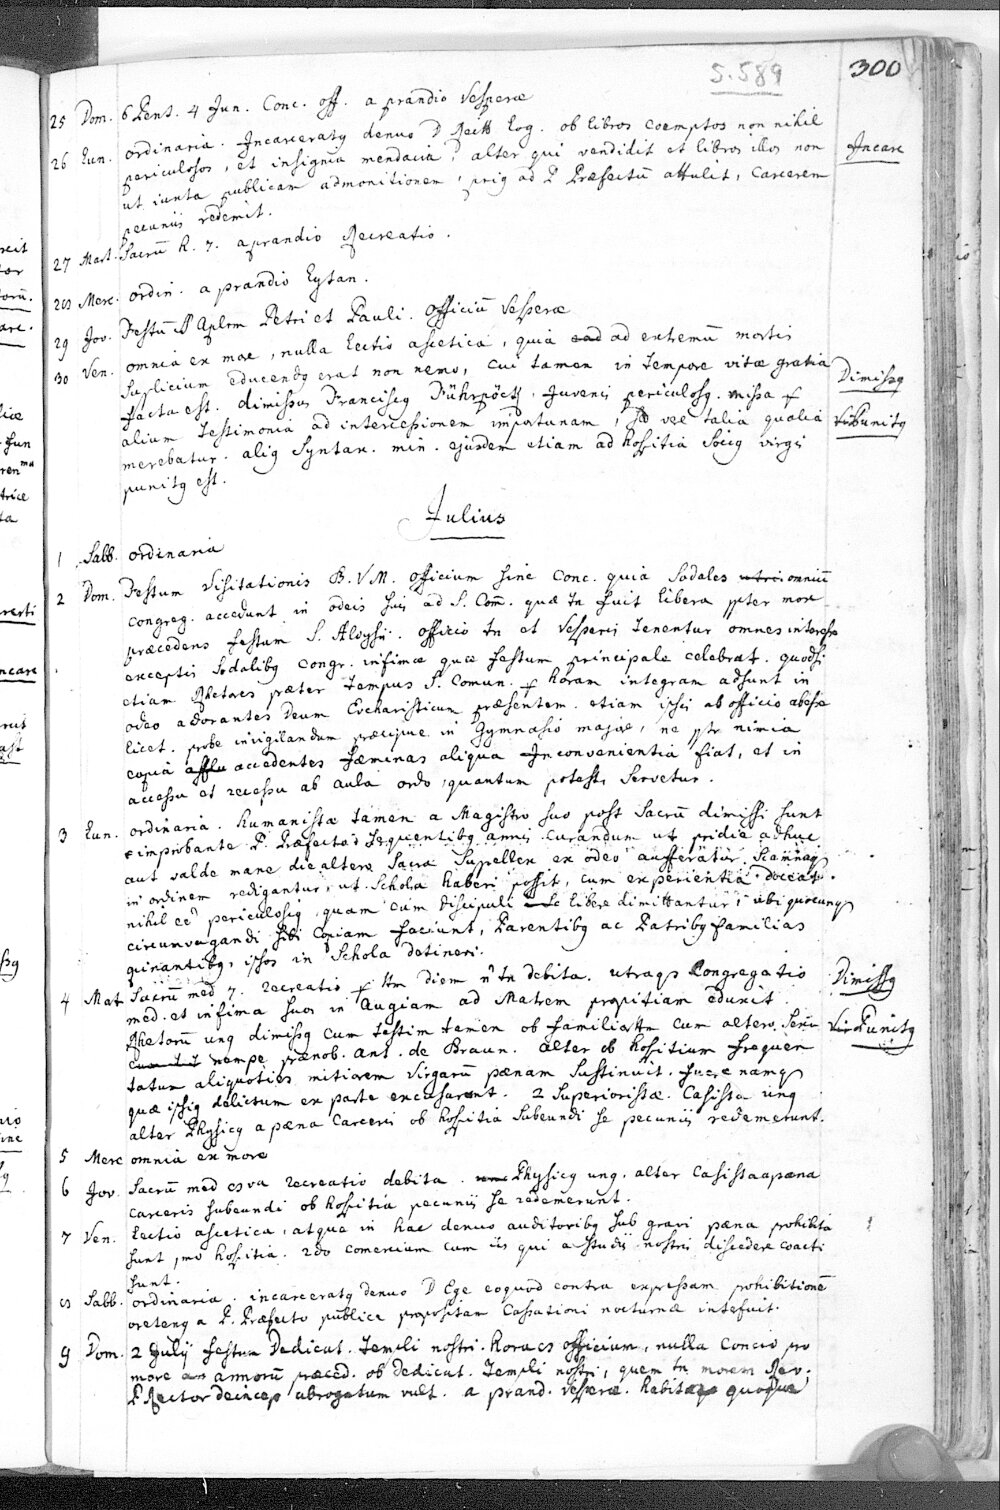 S. 589
300
25 Dom. 6 Pent. 4 Jun. Conc. off. a prandio Vesperæ
26 Lun. ordinaria. Incarceratq denuo D Log. ob libros coemptos non nihil
Incarc
periculosos, et insignia mendacia; alter qui vendidit et libros illos non
ut iuxta publicam admonitionem, priq ad P Præfectū attulit, Carcerem
pecuniis redemit.
27 Mart. Sacrū h. 7. a prandio Recreatio.
28 Merc. ordin. a prandio Exfan.
29 Jov. Festum Aplrm Petri et Pauli. Officiū Vesperæ
30 Ven. omnia ex more, nulla lectio ascetica, quia ead ad extremū mortis
Supplicium educendq erat non nemo, cui tamen in tempore vitæ gratia
Dimissq
facta est. dimissus Franciscq, Juvenis periculosq. missa
alium Testimonia ad intercessionem importunam, vel talia qualia
Punitq
merebatur. aliq Syntax. min. ejusdem etiam ad hospitia sociq virgis
punitq est.
Julius
1 Sabb. ordinaria
2 Dom. Festum Visitationis B. V M. officium sine Conc. quia Sodales omniū
congreg. accedunt in odeis suis ad S. Com. quæ tn fuit libera pter more
præcedens festum S. Aloysii. officio tn et Vesperis tenentur omnes interesse
exceptis Sodalibq Congr. infimæ quæ festum principale celebrat. quodsi
etiam Rhetores præter tempus S. Comun. horam integram adsunt in
odeo adorantes Deum Eucharisticum præsentem. etiam ipsis ab officio abesse
licet. probe invigilandum præcipue in Gymnasio majore, ne ptr nimia
copia accedentes fæminas aliqua Inconvenientia fiat, et in
accessu et recessu ab aula ordo, quantum potest, servetur.
3 Lun. ordinaria. Humanistæ tamen a Magistro suo post Sacrū dimissi sunt
improbante P. Præfecto. Sequentibq annis curandum ut pridie adhuc
aut valde mane die altero Sacra Supellex ex odeo aufferatur. Scamnaq
in ordinem redigantur, ut Schola haberi possit, cum experientia doceat
nihil eē periculosiq, quam cum Discipuli libere dimittantur, ubi quocunq
circumvagandi sibi copiam faciunt, Parentibq ac Patribq familias
opinantibq, ipsos in Schola detineri.
4 Mat Sacrū med 7. recreatio diem n tn debita. utraq Congregatio
med. et infima suos in Augiam ad Matrem propitiam eduxit
Dimissq
Rhetorū unq dimissq cum testim tamen ob familiaritm cum altero
Punitq
nempe prænob. ant. de Braun. alter ob hospitium frequen
tatum aliquoties mitiorem virgarū pænam sustinuit. fuere namq
quæ ipsiq delictum ex parte excusarent. 2 Superioristæ. Casista unq
alter Physicq a pæna Carceris ob hospitia subeundi se pecuniis redemerunt.
5 Merc omnia ex more
6 Jov. Sacrū med 8va recreatio debita. Physicq unq. alter Casista a pæna
carceris subeundi ob hospitia pecuniis se redemerunt.
7 Ven. Lectio ascetica, atque in hac denuo auditoribq sub gravi pæna prohibita
sunt, mo hospitia. 2do comercium cum iis qui a studiis nostris discedere coacti
sunt.
8 Sabb. ordinaria. incarceratq denuo D Ege eoquod contra expressam prohibitionē
oretenq a P. Præfecto publice propositam Cassationi nocturnæ intefuit.
9 Dom. 2 Julij festum Dedicat. Templi nostri. Hora 8 officium, nulla Concio pro
more annorū præced. ob dedicat. Templi nostri, quem tn morem Rev.
P Rector deincep abrogatum vult. a prand. Vesperæ. habitæq quoque